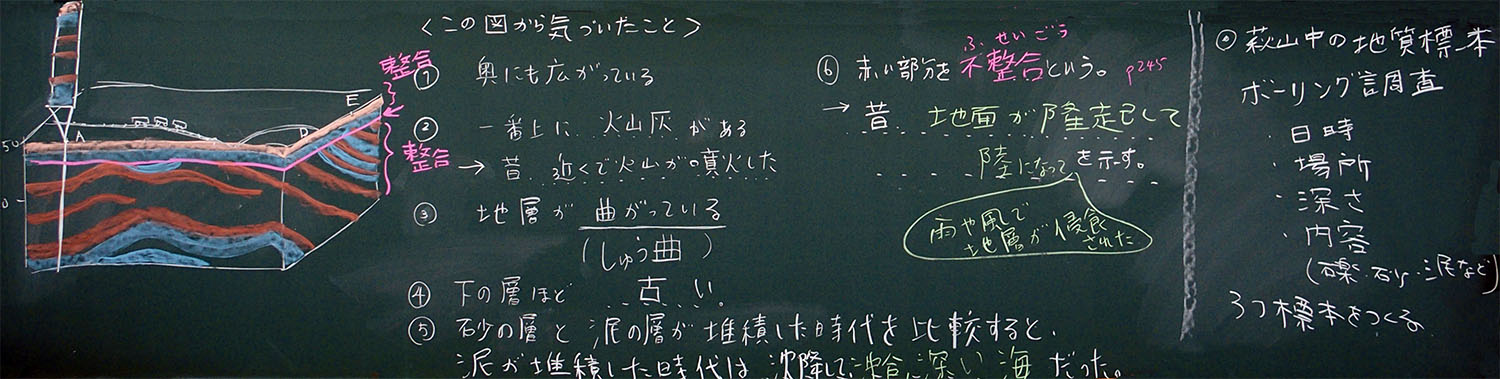 50
0
A
D
E
整合
整合
<この図から気づいたこと>
① 奥にも広がっている
② 一番上に 火山灰がある
→ 昔 近くで火山が噴火した
③ 地層が 曲がっている
(しゅう曲)
④ 下の層ほど 古い。
⑤ 砂の層と泥の層が堆積した時代を比較すると、
泥が堆積した時代は 沈降して 深い海だった。
ふせいごう
⑥ 赤い部分を不整合という。 p245
→ 昔 地面が隆起して
陸になって を示す。
雨や風で
地層が侵食
された
萩山中の地質標本
ボーリング調査
・日時
・場所
・深さ
・内容
(礫・砂・泥など)
3つ標本をつくる